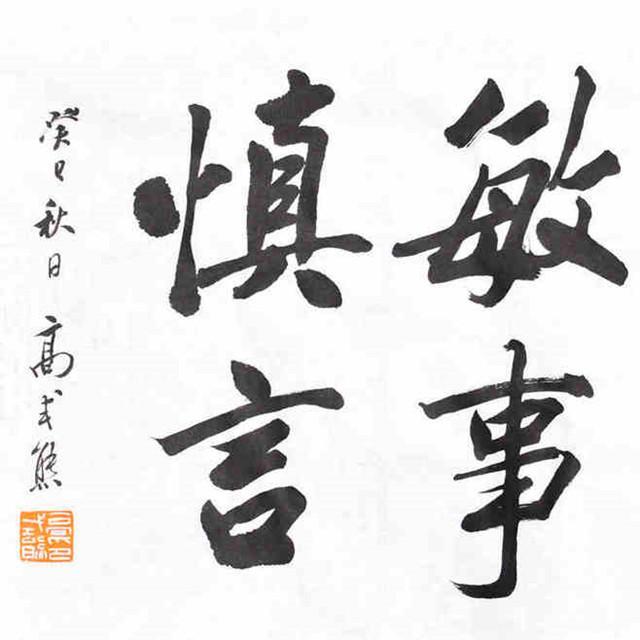 敏事
慎言
癸巳秋日 高式熊